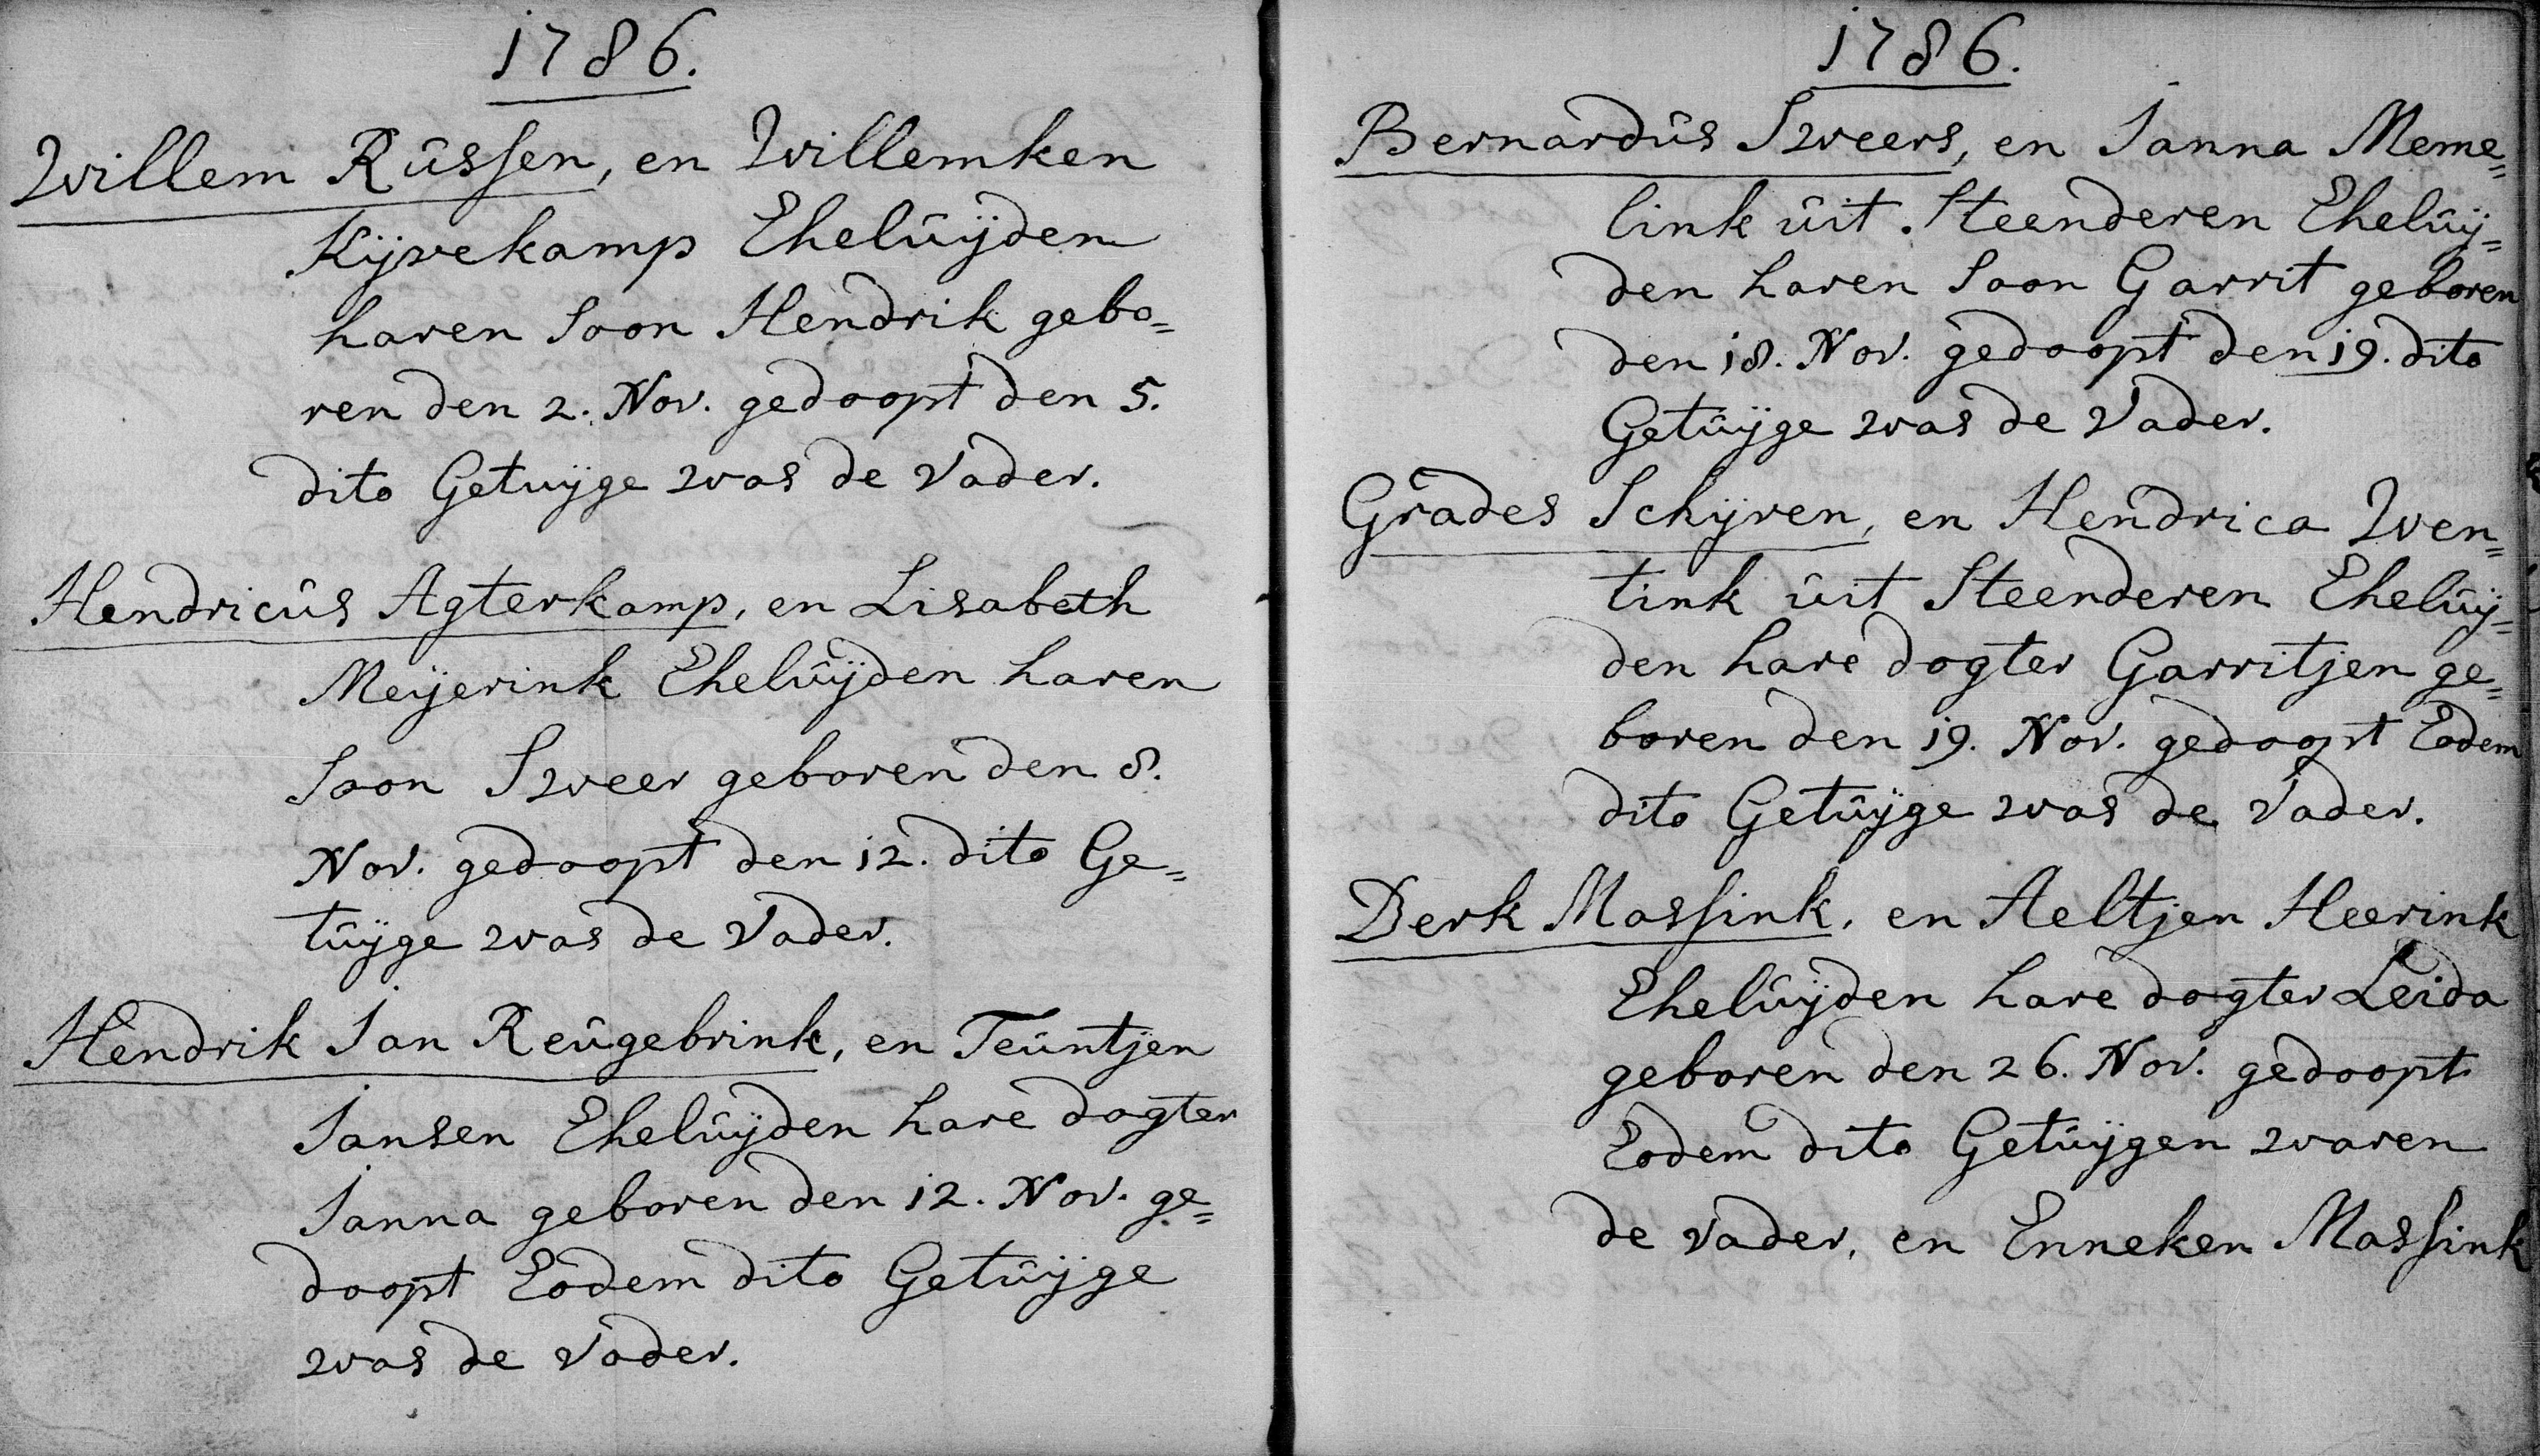 1786.
Willem Rûssen, en Willemken
Kijvekamp Ehelûijden
haren Soon Hendrik gebo=
ren den 2. Nov. gedoopt den 5.
dito Getuijge was de Vader.
Hendricûs Agterkamp, en Lisabeth
Meijerink Ehelûijden haren
Soon Sweer geboren den 8.
Nov. gedoopt den 12. dito Ge=
tûijge was de Vader.
Hendrik Jan Reûgebrink, en Teûntjen
Jansen Ehelûijden hare dogter
Janna geboren den 12. Nov. ge=
doopt Eodem dito Getûijge
was de Vader.
1786.
Bernardûs Sweers, en Janna Meme=
link ûit Steenderen Ehelûij=
den haren Soon Garrit geboren
den 18. Nov. gedoopt den 19. dito
Getûijge was de Vader.
Grades Schijven, en Hendrica Wen=
tink ûit Steenderen Ehelûij=
den hare dogter Garritjen ge=
boren den 19. Nov. gedoopt Eodem
dito Getûijge was de Vader.
Derk Massink, en Aeltjen Heerink
Ehelûijden hare dogter Leida
geboren den 26. Nov. gedoopt
Eodem dito Getûijgen waren
de Vader, en Enneken Massink